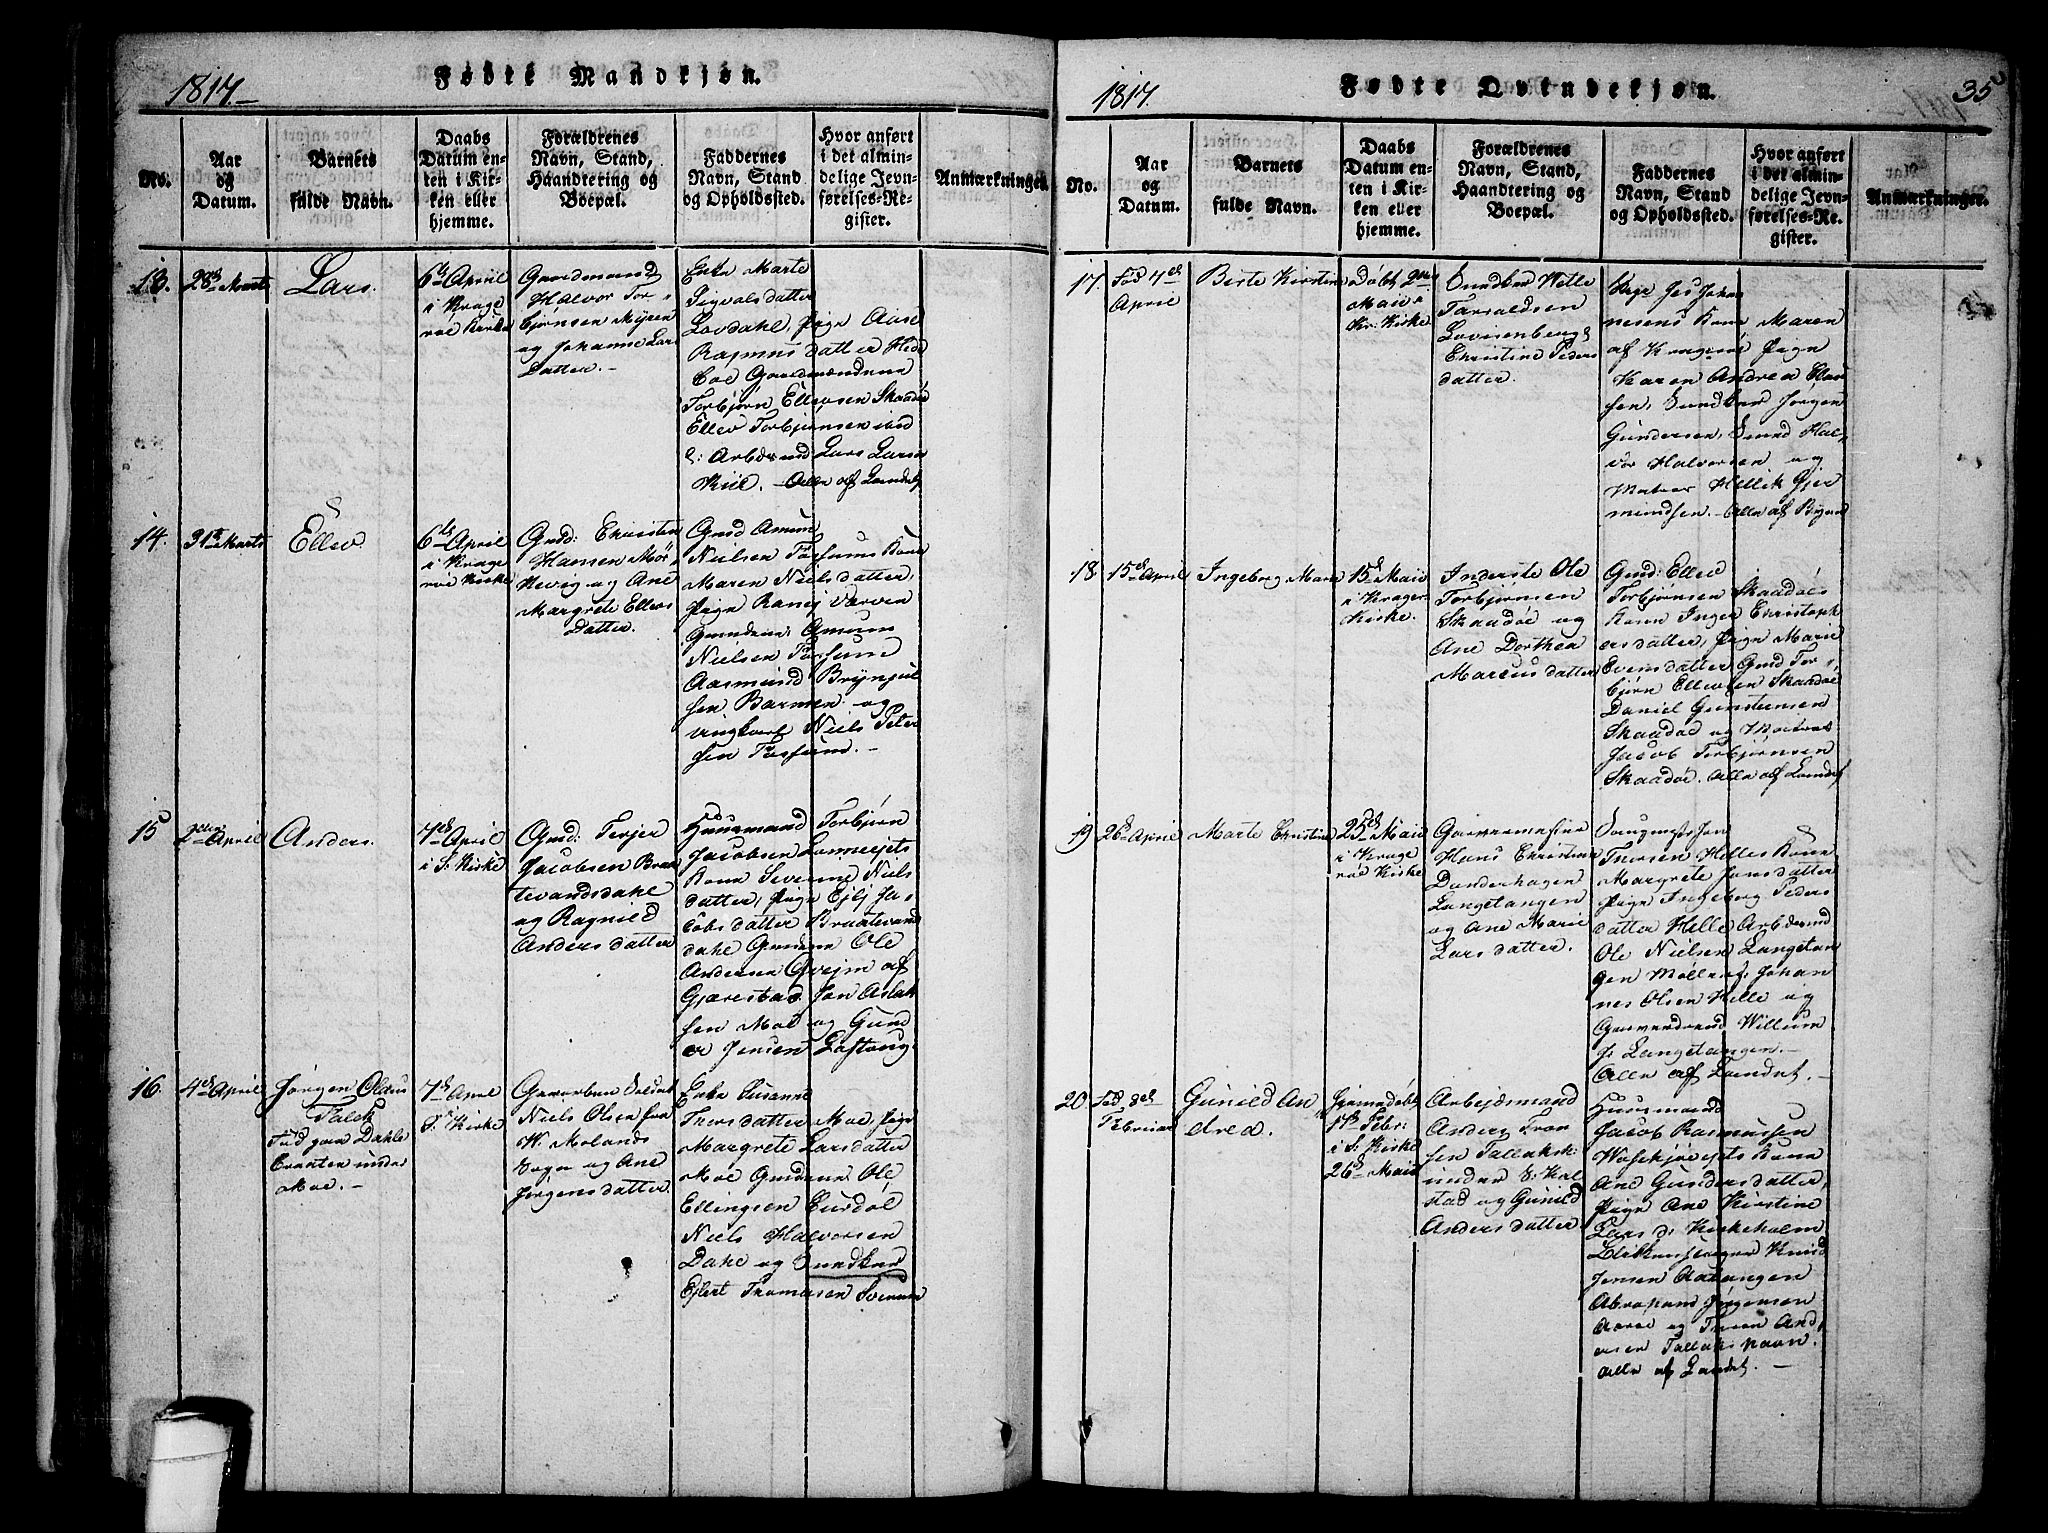 1817.
Fødte Mandkjøn.
No.
Aar
og
Datum.
Barnets
fulde Navn.
Daabs
Datum en-
ten i Kir-
ken eller
hjemme.
Forældrenes
Navn, Stand,
Haandtering og
Boepæl.
Faddernes
Navn, Stand
og Opholdssted.
Hvor anført
i det almin-
delige Jevn-
førelses-Re-
gister.
Anmærkninger.
13.
28de Marts
Lars.
6te April
i Krage
røe Kirke
Gaardmand
Halvor Tor-
bjørnsen Myren
og Johanne Lars
Datter. -
Enke Marte
Sigvalsdatter
Lovdahl, Pige Aase
Rasmusdatter Hede
boe Gaardmændene
Torbjørn Ellevsen Skaadøe
Ellev Torbjørnsen ibid
: Arbdsmd Lars Larsen
Kiil. - Alle af Landet
14.
31te Marts
Ellev.
6te April
i Krage
røe Kirke
Gmd: Christen
Hansen Mør-
Nevig og Ane
Margrete Ellevs
Datter.
Gmd Amun
Nielsen Fossums Kone
Maren Nielsdatter,
Pige Ranej Varven
Gmdene: Amum
Nielsen Fossum
Aasmund Brynjul
sen Barmen og
ungkarl Niels Peter
sen Fossum. -
15
2den April
Anders.
7de April
i S: Kirke
Gmd: Terjer
Jacobsen Braa
tevandsdahl
og Ragnild
Andersdatter
Huusmand Torbjørn
Jacobsen Lonneejets
Kone Severine Niels
datter, Pige Ejlj Ja-
cobsdatter Braatevand
dahl Gmdene Ole
Andersen Qvejm af
Gjerestad Jon Aslak
sen Moe og Gund
er Jensen Lofthoug.
16.
4de April
Jørgen Olaus
Falck
Fød paa Dahls
Eranten under
Moe. -
7de April
S: Kirke
Gevorben Soldat
Niels Olsen fra
W. Molands
Sogn og Ane
Jørgensdatter.
Enke Susanne
Thorsdatter Moe, Pige
Margrete Larsdatter
Moe Gmdene Ole
Ellingsen Eurdøl
Niels Halvorsen
Dahl og Sundkar
Ejlert Thomassen Svenum
1817.
Fødte Qvindekjøn.
35
No.
Aar
og
Datum.
Barnets
fulde Navn.
Daabs
Datum en-
ten i Kir-
ken eller
hjemme.
Forældrenes
Navn, Stand,
Haandtering og
Boepæl.
Faddernes
Navn, Stand
og Opholdssted.
Hvor anført
i det almin-
delige Jevn-
førelses-Re-
gister.
Anmærkninger.
17.
Fød 4de
April
Berte Kirstine
døbt 2den
Maii
Kr: Kirke
Sundkar Wetle
Tarjaldsen
Lovisenberg &
Christine Peders
datter.
Pige Jes Johan
nesens Kone Maren
af Kragerøe Pige
Karen Andrea Clau
sen, Sundkar Jørgen
Gundersen, Smed Hal-
vor Halvorsen og
Matros Hellik Gjer
mundsen. - Alle af Byen
18
15de April
Ingeborg Maren
15de Maii
i Krager
Kirke.
Inderste Ole
Torbjørnsen
Skaadøe og
Ane Dorthea
Marcusdatter
Gmd: Ellev
Torbjørnsen Skaadøes
Kone Inger Christoph
ersdatter, Pige Marie
Evensdatter Gmd Tor-
bjørn Ellevsen Skaadøe
Daniel Gunstensen
Skaadøe og Matros
Jacob Torbjørnsen
Skaadøe. Alle af Landet
19
26de April
Marte Christine
25de Maii
i Krage
røe Kirke
Garvermester
Hans Christian
Donderhagen
Langetangen
og Ane Marie
Larsdatter.
Saugmest: Jon
Thorsen Helles Kone
Margrete Jonsdatter
Pige Ingeborg Peders
datter Helle Arbdsmd
Ole Nielsen Langetan
gen Møller: Johan
nes Olsen Helle og
Garversvend Willum
J: Langetangen. -
Alle af Landet. -
20
Fød 8de
Februar
Gunild An,
drea.
hjemedøbt
17de Febr:
i S: Kirke
26de Maii
Arbejdsmand
Anders Tron
sen Tallaksh:
under S: Kal
stad og Gunild
Andersdatter
Huusmand
Jacob Rasmussen
Wasekjærejets Kone
Ane Gundersdatter,
Pige Ane Kirstine
Lars d: Kirkeholm
Blikkenslager Knud
Jensen Aatangen
Abraham Jørgensen
Aarøe og Tron And,
ersen Tallakshavn.
Alle af Landet. -